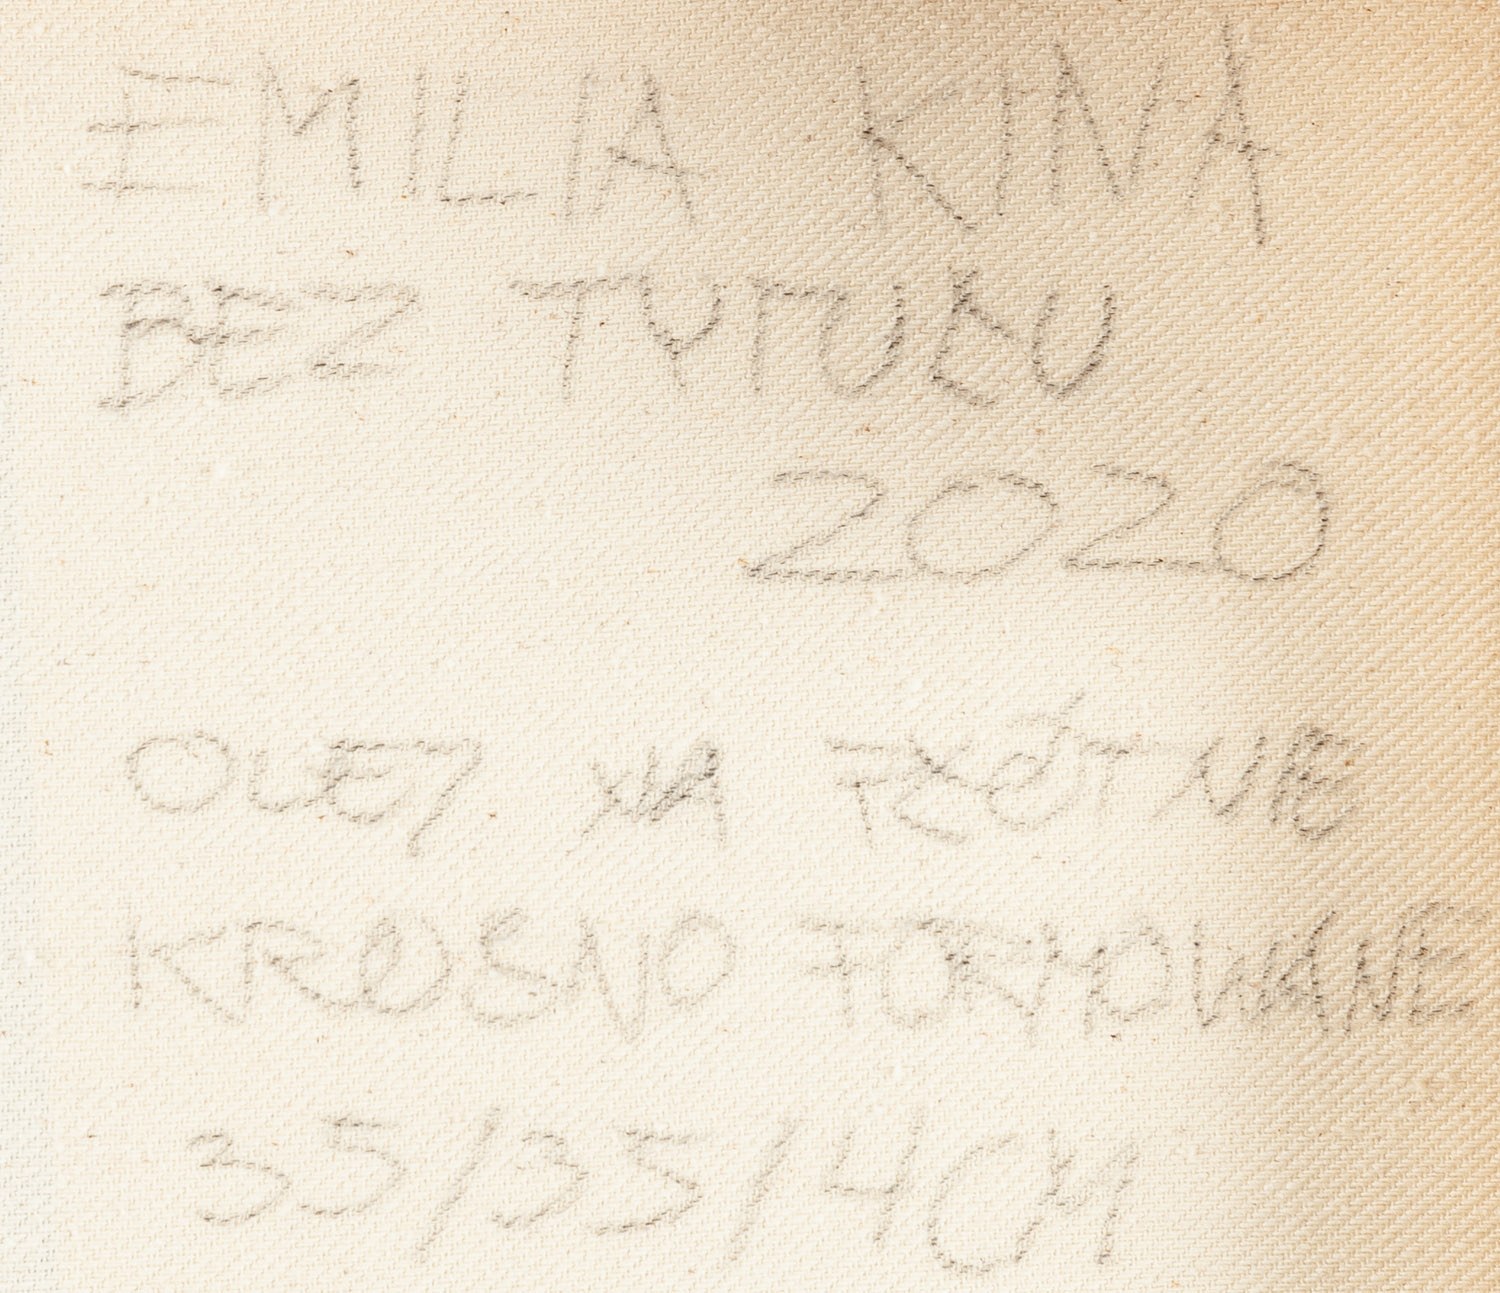 EMILIA KINA
BEZ TYTUŁU
2020
OLEJ NA PŁÓTNIE
KROSNO FORMOWANE
35/35/4CM